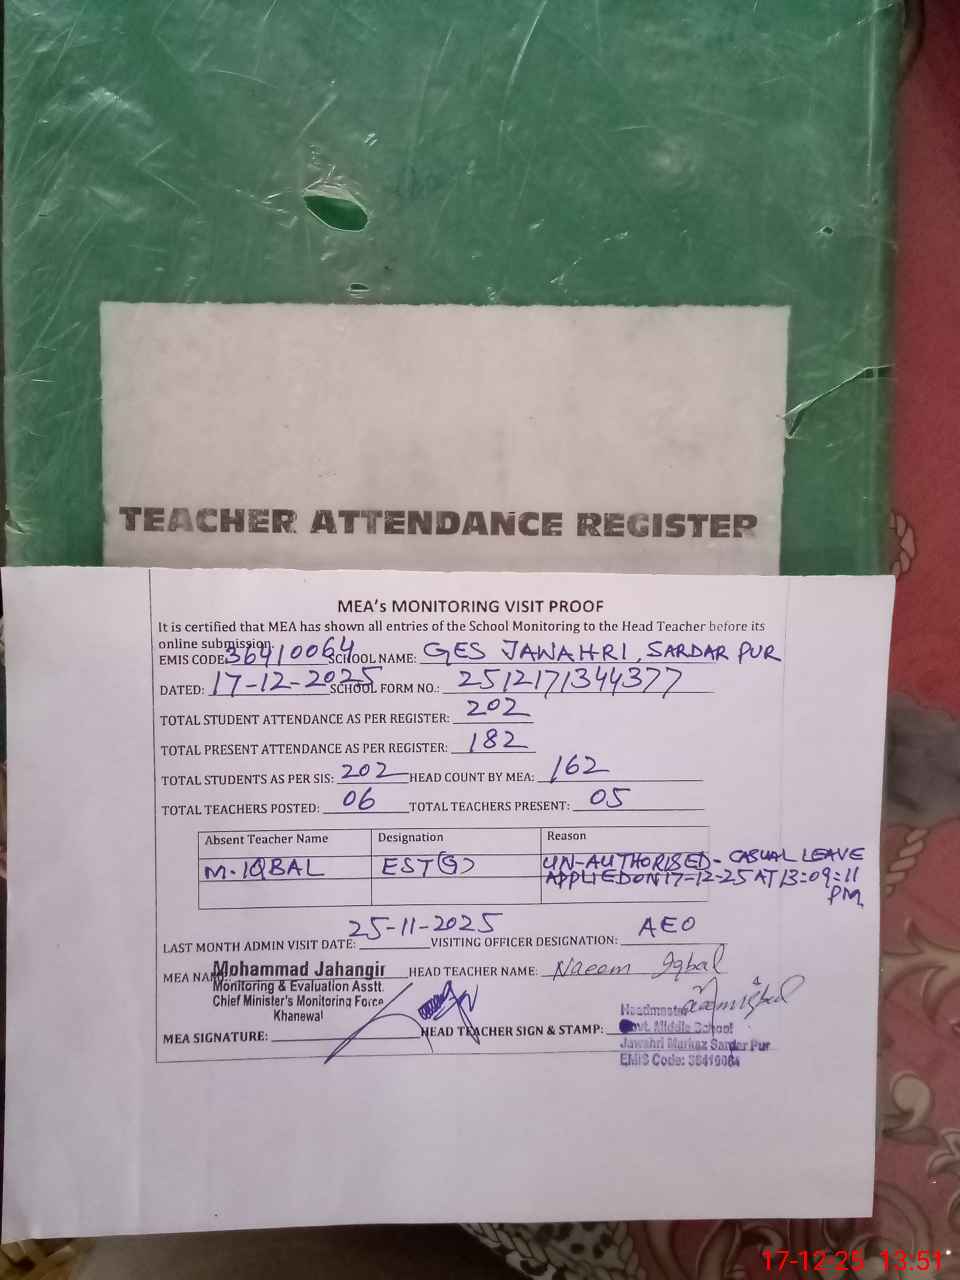 TEACHER ATTENDANCE REGISTER
MEA's MONITORING VISIT PROOF
It is certified that MEA has shown all entries of the School Monitoring to the Head Teacher before its
online submission.
EMIS CODE: 36410064 SCHOOL NAME: GES JAWAHRI, SARDAR PUR
DATED: 17-12-2025 SCHOOL FORM NO.: 2512171344377
TOTAL STUDENT ATTENDANCE AS PER REGISTER: 202
TOTAL PRESENT ATTENDANCE AS PER REGISTER: 182
TOTAL STUDENTS AS PER SIS: 202 HEAD COUNT BY MEA: 162
TOTAL TEACHERS POSTED: 06 TOTAL TEACHERS PRESENT: 05
Absent Teacher Name Designation Reason
M. IQBAL EST(G) UN-AUTHORISED- CASUAL LEAVE
APPLIED ON 17-12-25 AT 13:09:11
PM
LAST MONTH ADMIN VISIT DATE: 25-11-2025 VISITING OFFICER DESIGNATION: AEO
MEA NAME Mohammad Jahangir HEAD TEACHER NAME: Naeem Iqbal
Monitoring & Evaluation Asstt.
Chief Minister's Monitoring Force
Khanewal
MEA SIGNATURE: HEAD TEACHER SIGN & STAMP:
Headmaster
Govt. Middle School
Jawahri Markaz Sardar Pur
EMIS Code:
17-12-25 13:51